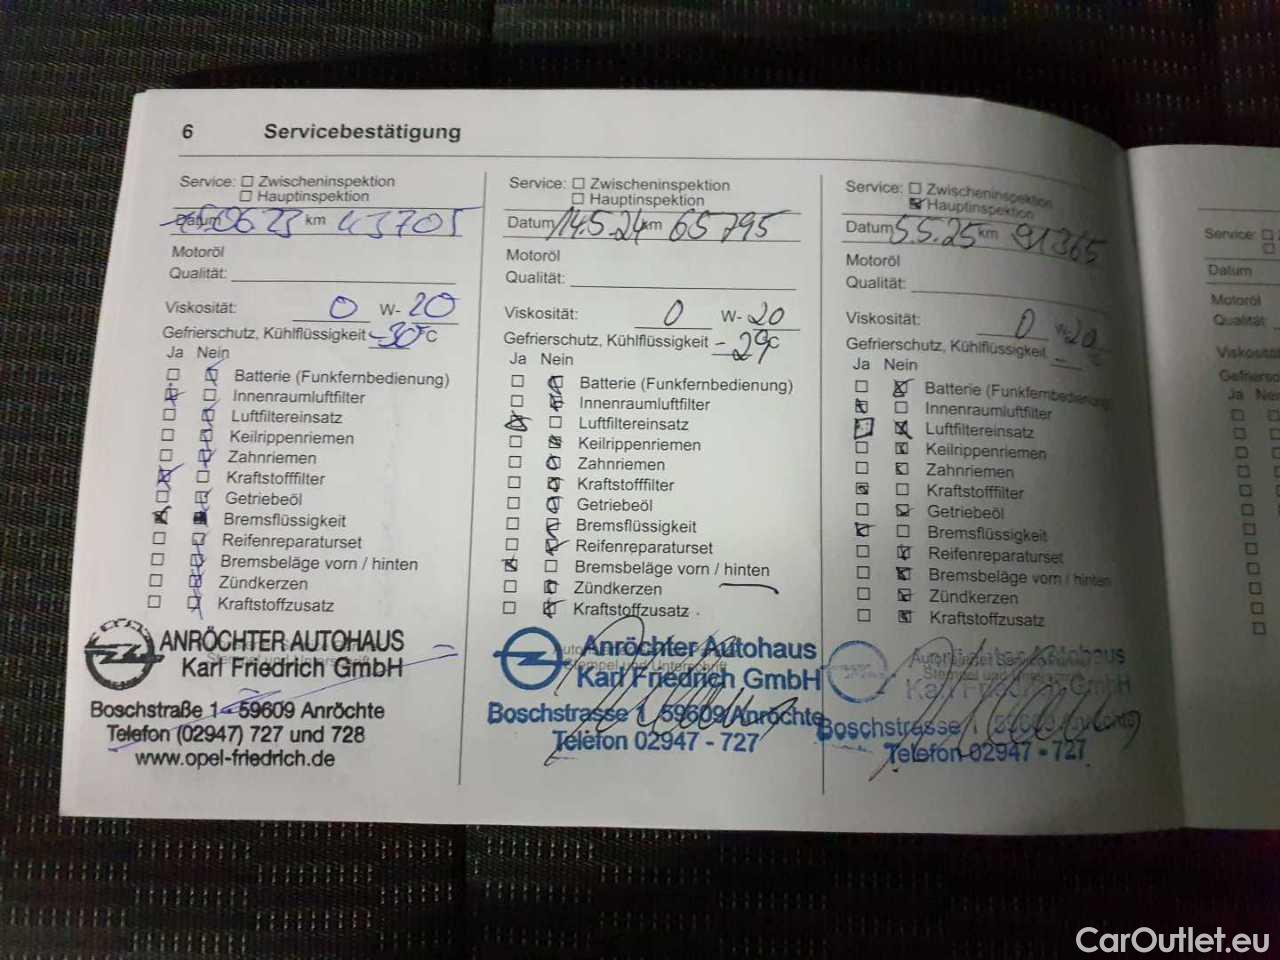 6 Servicebestätigung
Service: Zwischeninspektion
Hauptinspektion
Datum 06 23 km 43705
Motoröl
Qualität:
Viskosität: 0 W- 20
Gefrierschutz, Kühlflüssigkeit -30 °C
Ja Nein
Batterie (Funkfernbedienung)
Innenraumluftfilter
Luftfiltereinsatz
Keilrippenriemen
Zahnriemen
Kraftstofffilter
Getriebeöl
Bremsflüssigkeit
Reifenreparaturset
Bremsbeläge vorn / hinten
Zündkerzen
Kraftstoffzusatz
ANRÖCHTER AUTOHAUS
Karl Friedrich GmbH
Boschstraße 1 - 59609 Anröchte
Telefon (02947) 727 und 728
www.opel-friedrich.de
Service: Zwischeninspektion
Hauptinspektion
Datum 14.5.24 km 65795
Motoröl
Qualität:
Viskosität: 0 W- 20
Gefrierschutz, Kühlflüssigkeit - 29 °C
Ja Nein
Batterie (Funkfernbedienung)
Innenraumluftfilter
Luftfiltereinsatz
Keilrippenriemen
Zahnriemen
Kraftstofffilter
Getriebeöl
Bremsflüssigkeit
Reifenreparaturset
Bremsbeläge vorn / hinten
Zündkerzen
Kraftstoffzusatz
Anröchter Autohaus
Stempel und Unterschrift
Karl Friedrich GmbH
Boschstrasse 1, 59609 Anröchte
Telefon 02947 - 727
Service: Zwischeninspektion
Hauptinspektion
Datum 5.5.25 km 91365
Motoröl
Qualität:
Viskosität: 0 W- 20
Gefrierschutz, Kühlflüssigkeit - °C
Ja Nein
Batterie (Funkfernbedienung)
Innenraumluftfilter
Luftfiltereinsatz
Keilrippenriemen
Zahnriemen
Kraftstofffilter
Getriebeöl
Bremsflüssigkeit
Reifenreparaturset
Bremsbeläge vorn / hinten
Zündkerzen
Kraftstoffzusatz
Autohaus
Boschstrasse
Telefon 02947 - 727
Service:
Datum
Motoröl
Qualität
Ja
CarOutlet.eu